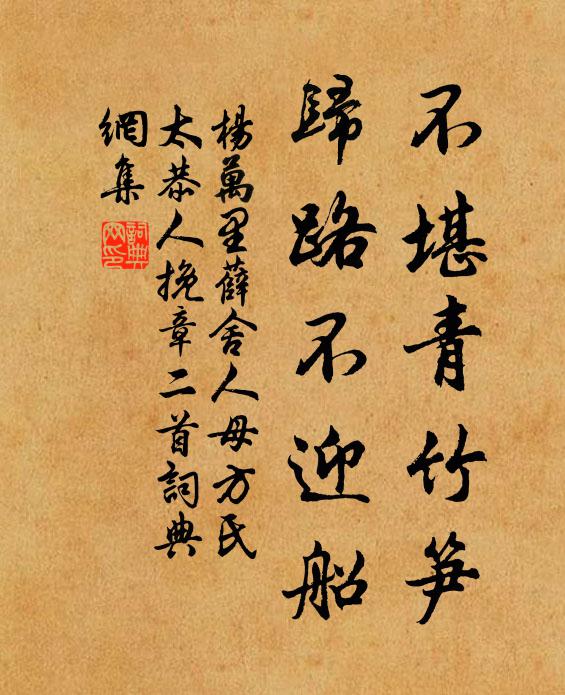 不堪青竹笋
歸路不迎船
楊萬里薛舍人母方氏
太恭人挽章二首詞典
網集
詞典
网印